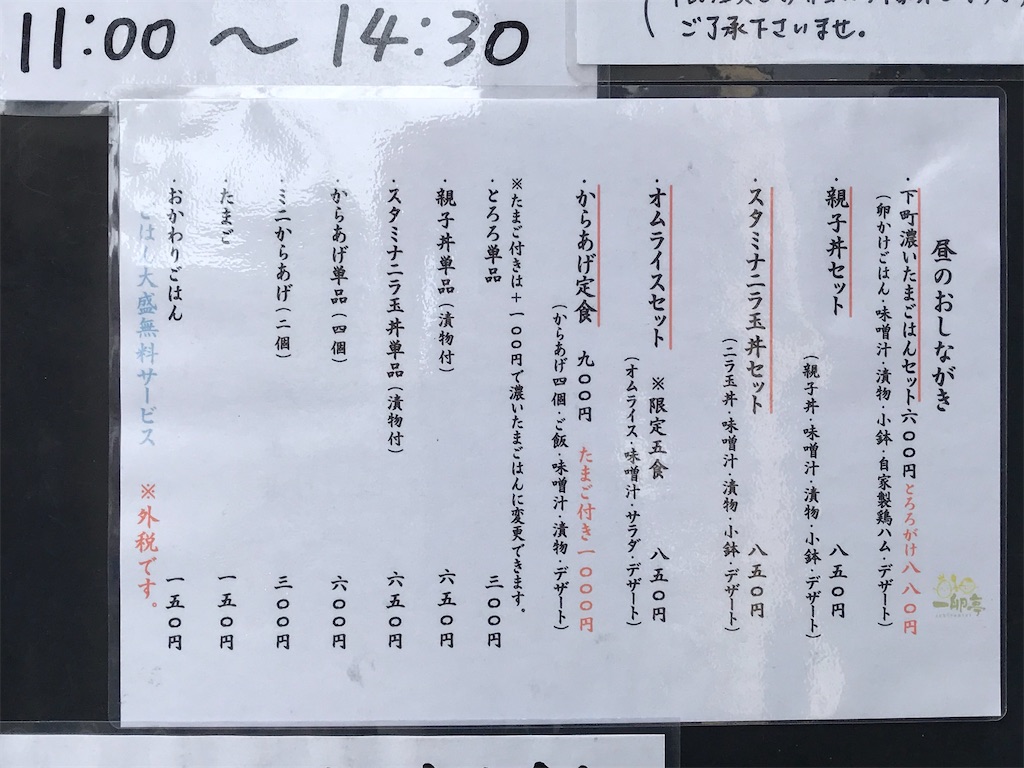 11:00 〜 14:30
ご了承下さいませ。
昼のおしながき
・下町濃いたまごはんセット六〇〇円 とろろがけ八八〇円
(卵かけごはん・味噌汁・漬物・小鉢・自家製鶏ハム・デザート)
・親子丼セット 八五〇円
(親子丼・味噌汁・漬物・小鉢・デザート)
・スタミナニラ玉丼セット 八五〇円
(ニラ玉丼・味噌汁・漬物・小鉢・デザート)
・オムライスセット ※限定五食 八五〇円
(オムライス・味噌汁・サラダ・デザート)
・からあげ定食 九〇〇円 たまご付き一〇〇〇円
(からあげ四個・ご飯・味噌汁・漬物・デザート)
※たまご付きは+一〇〇円で濃いたまごはんに変更できます。
・とろろ単品 三〇〇円
・親子丼単品(漬物付) 六五〇円
・スタミナニラ玉丼単品(漬物付) 六五〇円
・からあげ単品(四個) 六〇〇円
・ミニからあげ(二個) 三〇〇円
・たまご 一五〇円
・おかわりごはん 一五〇円
ごはん大盛無料サービス ※外税です。
一卵亭